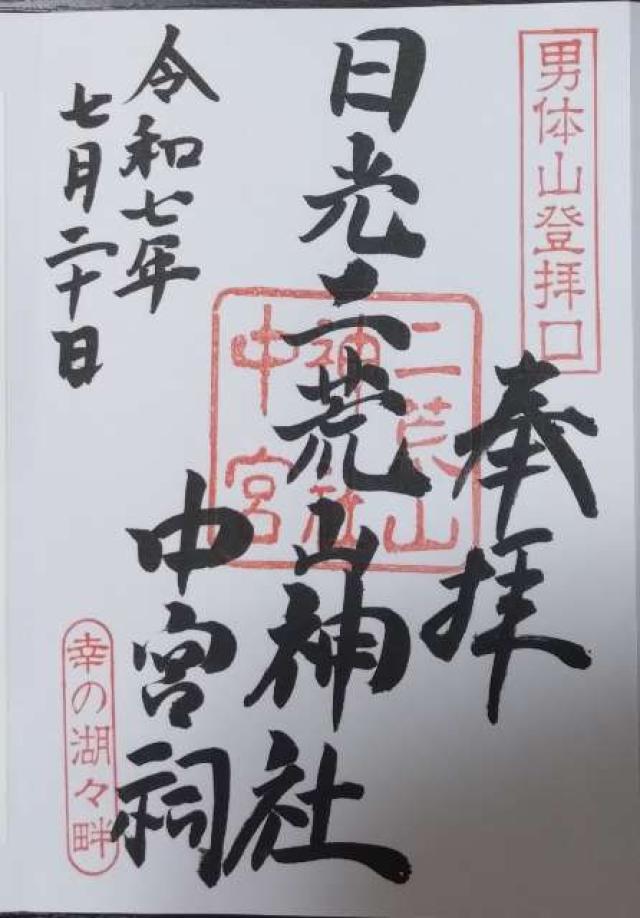 男体山登拝口
奉拝
日光二荒山神社
中宮祠
二荒山
神社
中宮
令和七年
七月二十日
幸の湖々畔